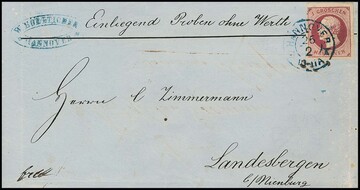 HANNOVER
Einliegend Proben ohne Werth.
GROSCHEN
HANNOVER
26
2
Herrn C Zimmermann
Landesbergen
b/Nienburg